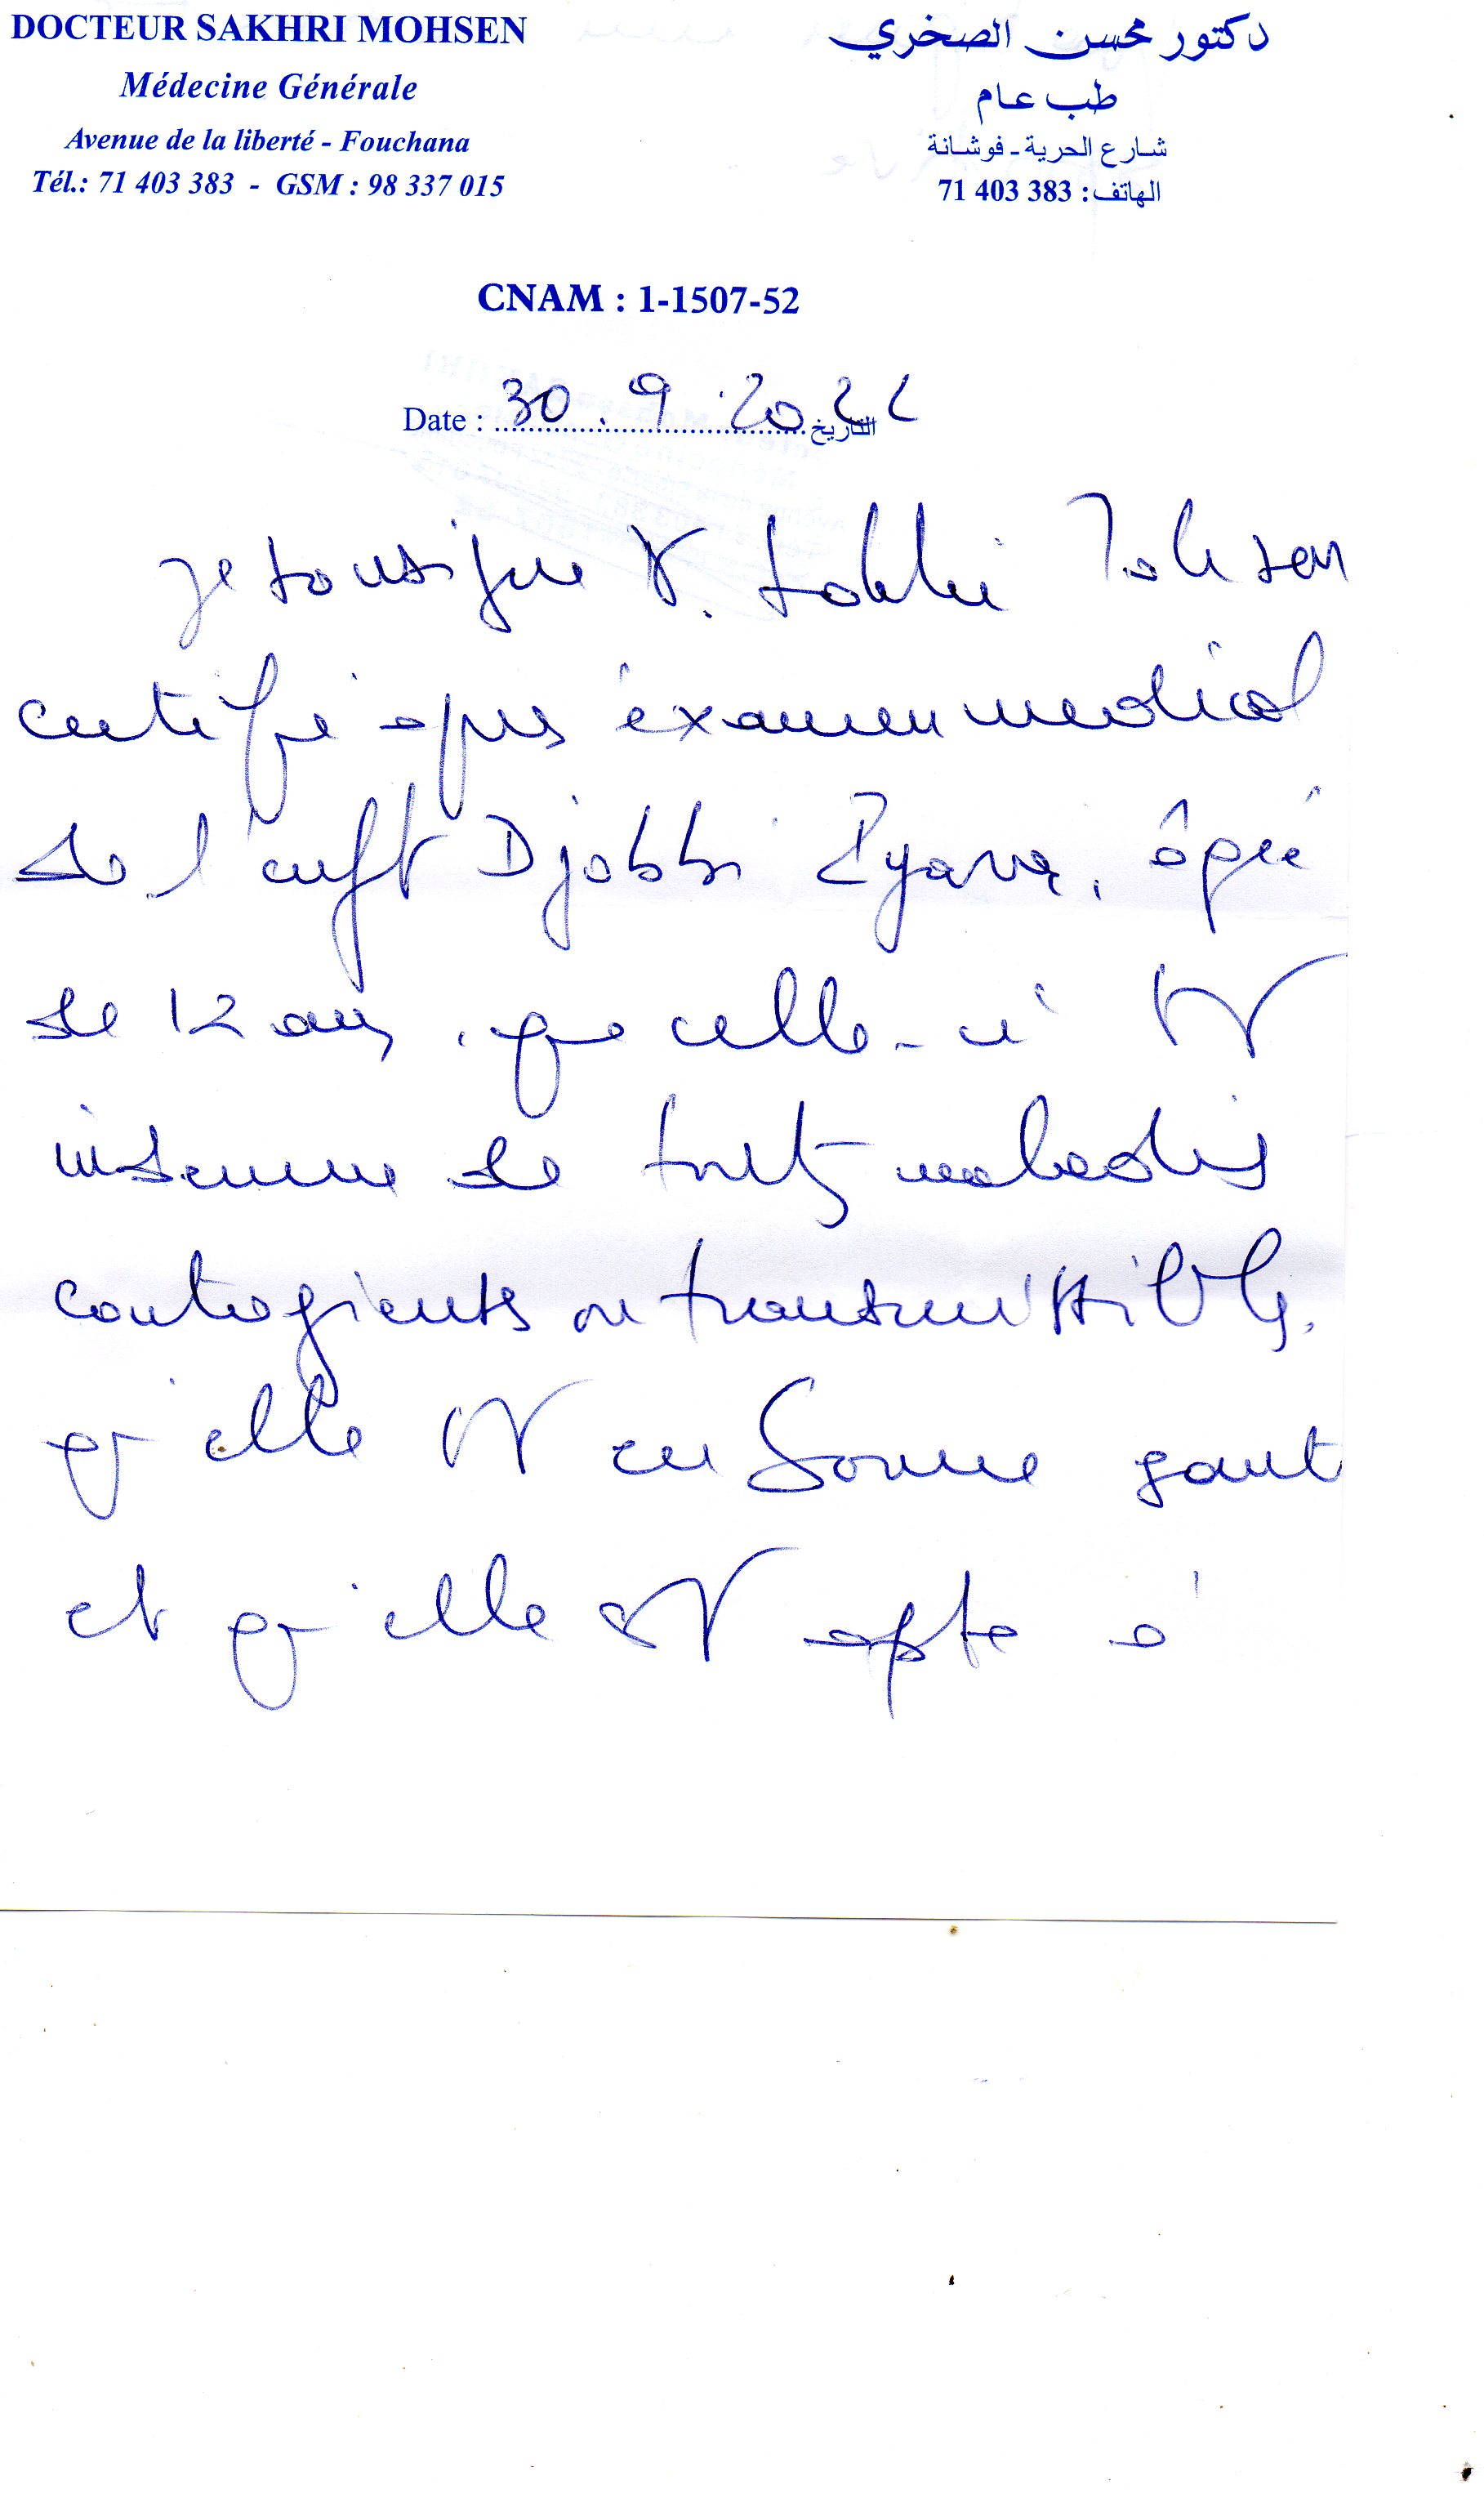 DOCTEUR SAKHRI MOHSEN
Médecine Générale
Avenue de la liberté - Fouchana
Tél.: 71 403 383 - GSM : 98 337 015
دكتور محسن الصخري
طب عام
شارع الحرية - فوشانة
الهاتف: 383 403 71
CNAM : 1-1507-52
Date : 30.9.2022 التاريخ
Je soussigné Dr. Sakhri Mohsen
certifie après éxamen medical
de l'enft Djobbi Eyana, âgée
de 12 ans, que celle-ci est
indemne de toutes maladies
contagieuses ou transmissibles,
qu'elle est en bonne santé
et qu'elle est apte à